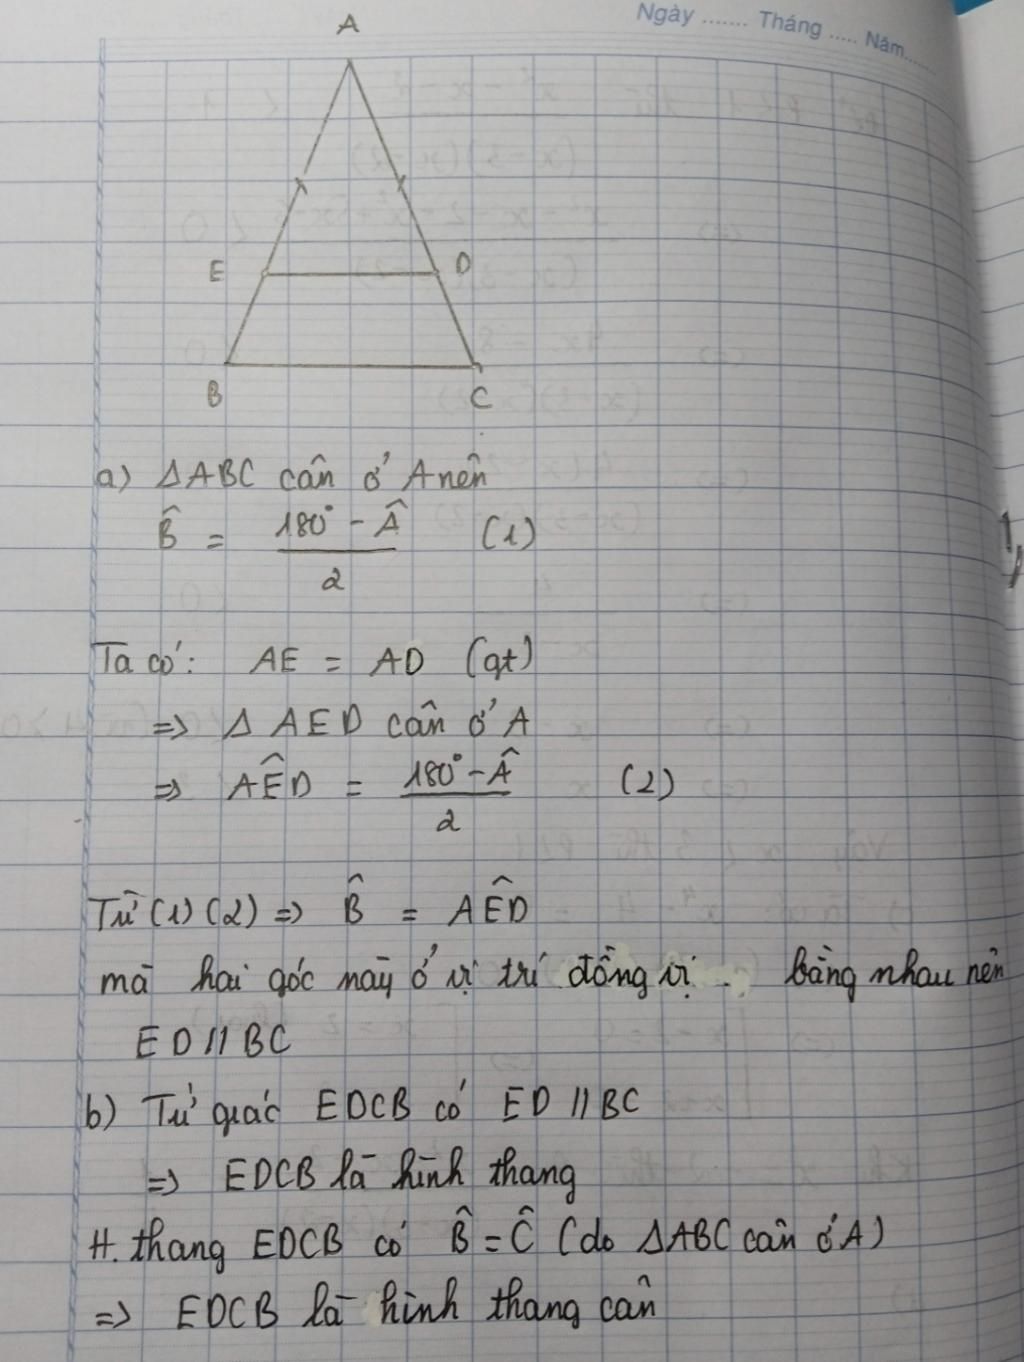 Ngày ....... Tháng ..... Năm.......
A
E
D
B
C
a) ΔABC cân ở A nên
B̂ = (180° - Â)/2 (1)
Ta có: AE = AD (gt)
=> Δ AED cân ở A
=> AÊD = (180° - Â)/2 (2)
Từ (1) (2) => B̂ = AÊD
mà hai góc này ở vị trí đồng vị bằng nhau nên
ED // BC
b) Tứ giác EDCB có ED // BC
=> EDCB là hình thang
H. thang EDCB có B̂ = Ĉ (do ΔABC cân ở A)
=> EDCB là hình thang cân